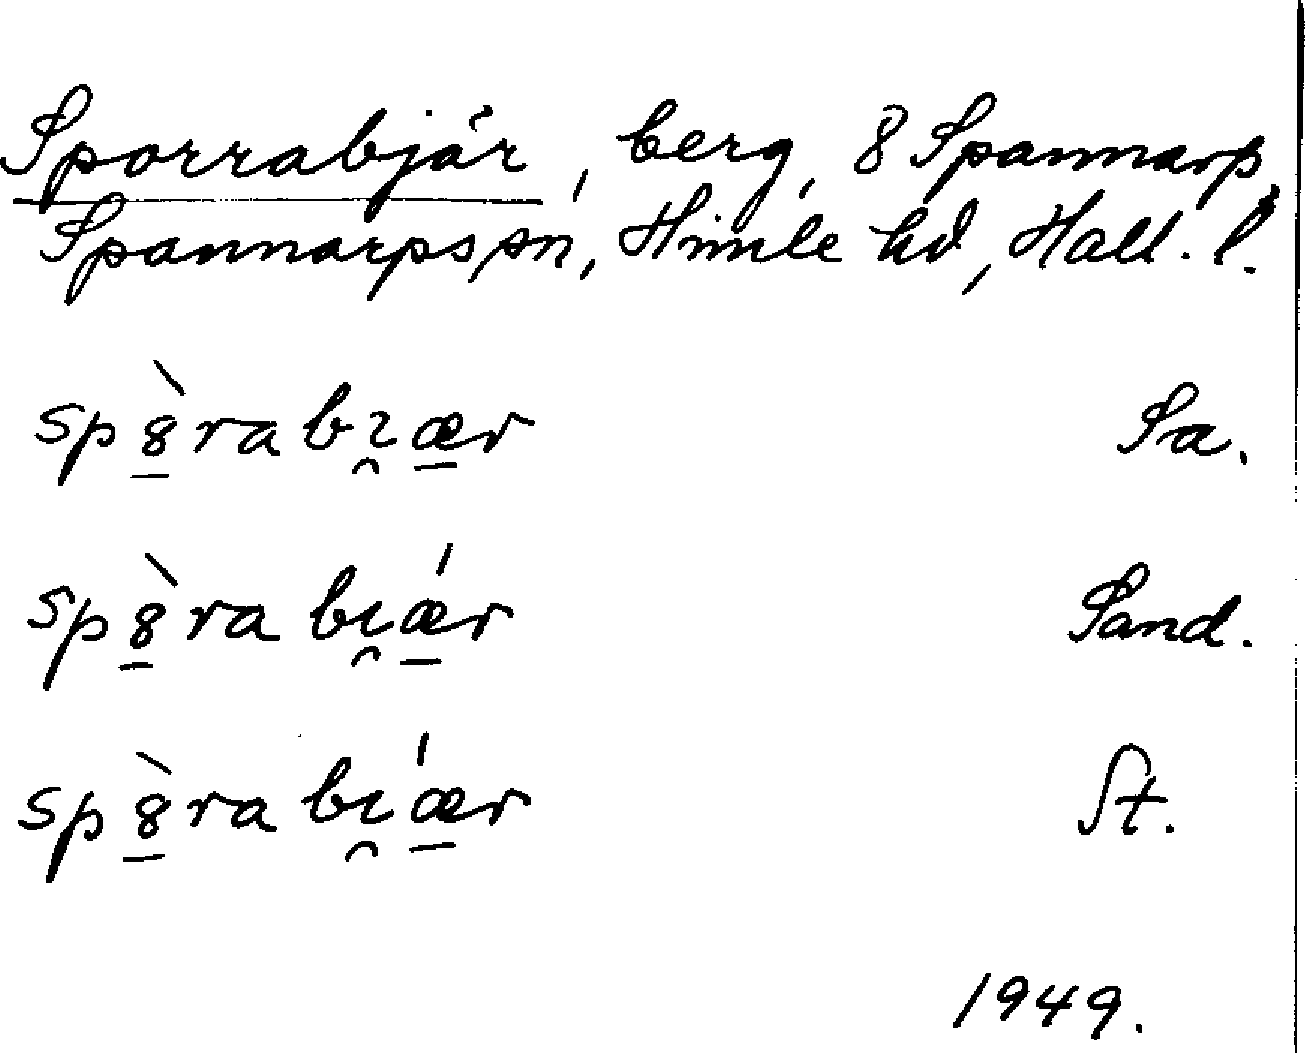 Sporrabjär, berg, 8 Spannarp,
Spannarps sn, Himle hd, Hall. l.
sp8̱̀rabı̯æ̱r Sa.
sp8̱̀rabı̯ǽ̱r Sand.
sp8̱̀rabı̯ǽ̱r St.
1949.